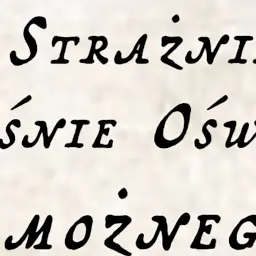 Strażni
śnie Ośw
możneg